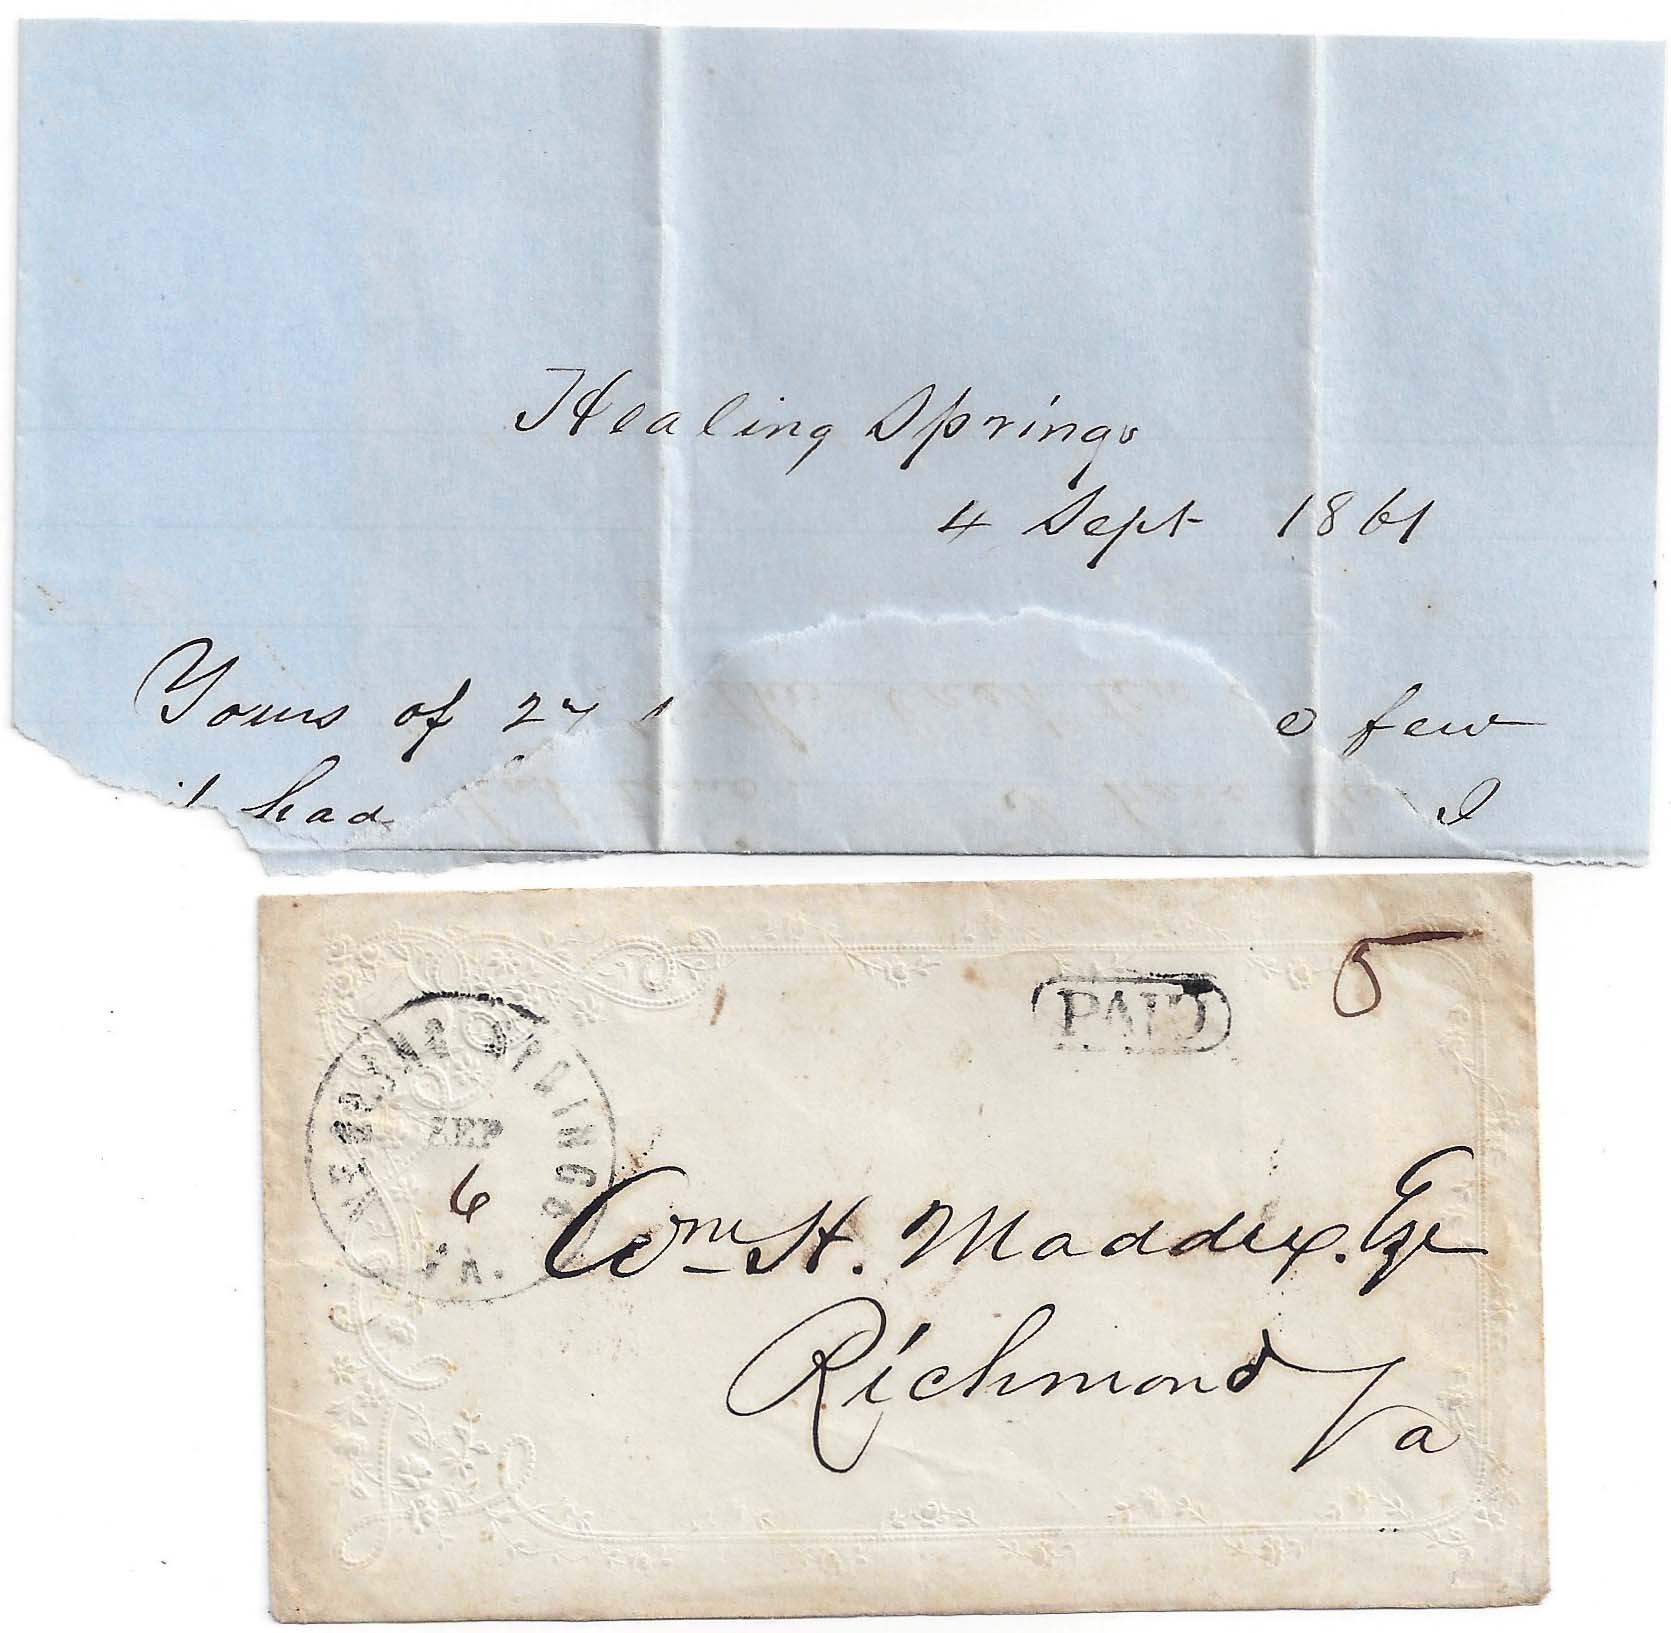 Healing Springs
4 Sept 1861
Yours of 27 few
had I
5
PAID
SPRINGS
SEP
6
VA.
Wm H. Maddux. Esqr
Richmond
Va